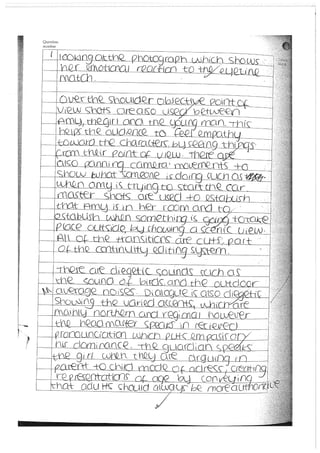 Question
number
1 looking at the photograph which shows
her emotional reaction to the eyeline
match.
Over the shoulder objective point of
view shots are also used between
Amy, the girl and the young man. This
helps the audience to feel empathy
toward the characters by seeing things
from their point of view. There are
also panning camera movements to
show what someone is doing such as
when amy is trying to start the car.
master shots are used to establish
that Amy is in her room and to
establish when something is going to take
place outside by showing a scenic view.
All of the transitions are cuts, part
of the continuity editing system.
There are diegetic sounds such as
the sound of birds and the outdoor
average noises. Dialogue is also diegetic
showing the varied accents, which are
mainly northern and regional however
the headmaster speaks in recieved
pronounciation which puts empasis on
his dominance. The guardian speaks
the girl when they are arguing in
parent to child mode of adress, creating
representations of age by conveying
that adults should always be more authoritive